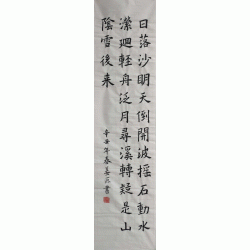 日落沙明天倒開波摇石動水
瀠廻輕舟泛月尋溪轉疑是山
陰雪後来
辛丑年春